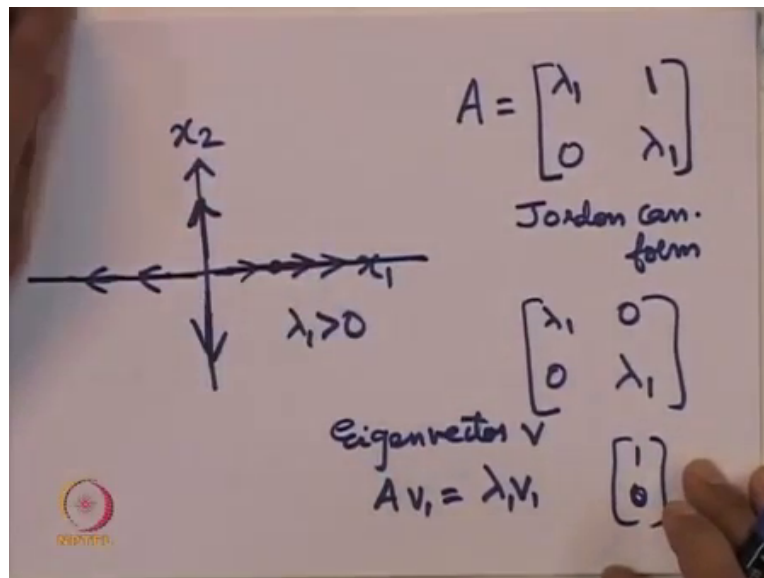 x₂
A = [λ₁ 1
0 λ₁]
Jordon can.
form
x₁
λ₁>0
[λ₁ 0
0 λ₁]
Eigenvector v
A v₁ = λ₁v₁ [1
0]
NPTEL